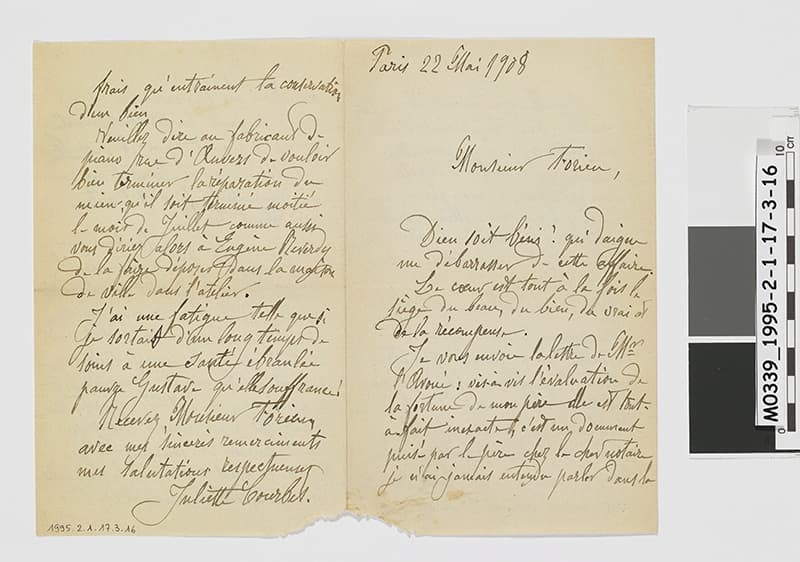 Paris 22 Mai 1908
Monsieur Torieu,
Dieu soit béni ! qui daigne
me débarrasser de cette affaire.
Le cœur est tout à la fois le
siège du beau, du bien, du vrai et
de la récompense.
Je vous envoie la lettre de Mr
l'Avoué : vis à vis l'évaluation de
la fortune de mon père elle est tout-
à-fait inexacte, c'est un document
puisé par le père chez le cher notaire
je n'ai jamais entendu parler dans la
frais qu'entrainent la conservation
d'un bien
Veuillez dire au fabricant de
piano rue d'Anvers de vouloir
bien terminer la réparation du
mien, qu'il soit terminé moitié
le mois de Juillet comme aussi
vous diriez alors à Eugène Reverdy
de le faire déposer dans la maison
de ville dans l'atelier.
J'ai une fatigue telle que si
je sortait d'un long temps de
soins à une santé ébranlée
pauvre Gustave qu'elle souffrance !
Recevez Monsieur Torieu,
avec mes sincères remerciments
mes salutations respectueuses
Juliette Courbet.
1995.2.1.17.3.16
M0339_1995-2-1-17-3-16
0
10
cm